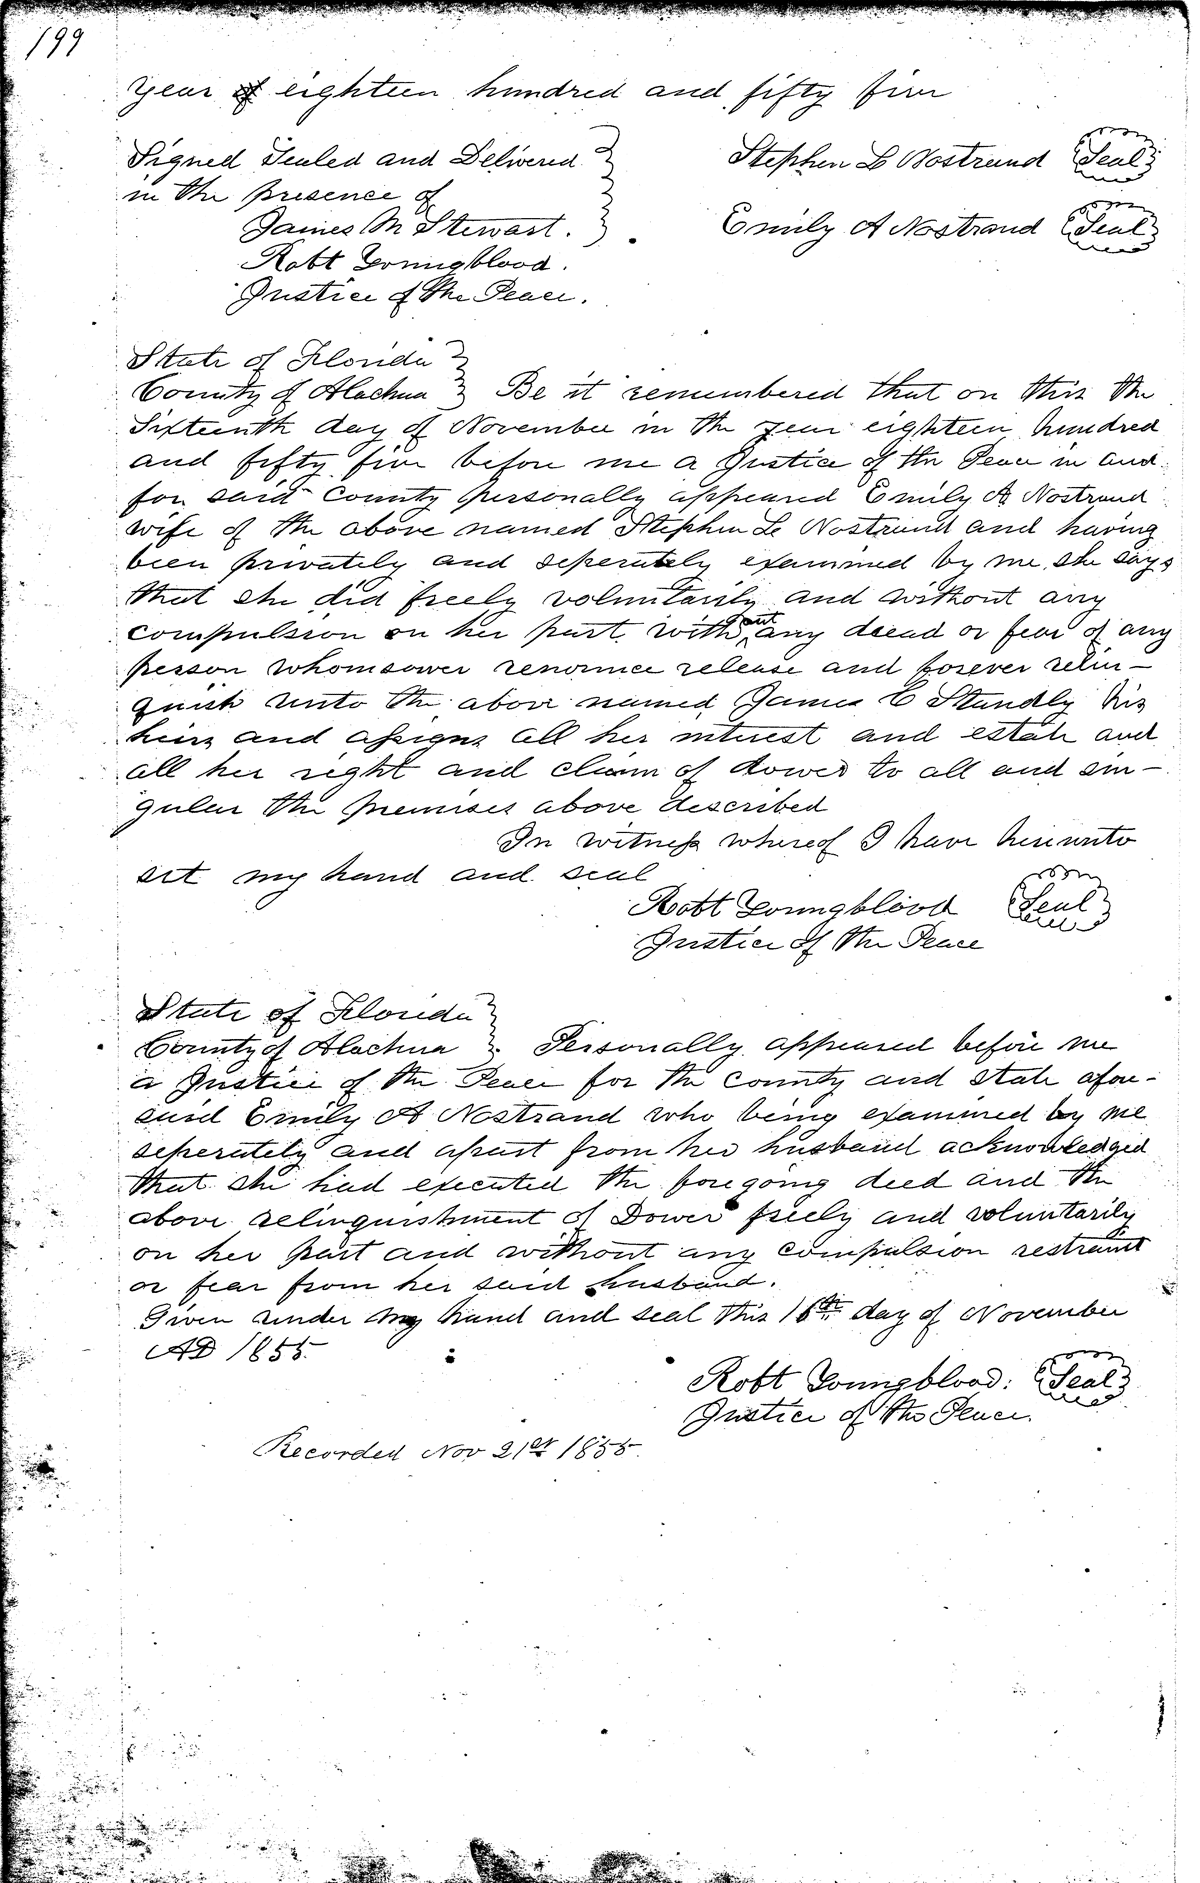 199
year of eighteen hundred and fifty five
Signed Sealed and Delivered
in the presence of
James M Stewart.
Robt Youngblood.
Justice of the Peace.
Stephen L Nostrand Seal
Emily A Nostrand Seal
State of Florida
County of Alachua Be it remembered that on this the
Sixteenth day of November in the year eighteen hundred
and fifty five before me a Justice of the Peace in and
for said County personally appeared Emily A Nostrand
wife of the above named Stephen Le Nostrand and having
been privately and seperately examined by me she says
that she did freely voluntarily and without any
compulsion on her part without any dread or fear of any
person whomsower renounce release and forever relin-
quish unto the above named James C Standly his
heirs and assigns all her interest and estate and
all her right and claim of dower to all and sin-
gular the premises above described
In witness whereof I have hereunto
set my hand and seal
Robt Youngblood Seal
Justice of the Peace
State of Florida
County of Alachua Personally appeared before me
a Justice of the Peace for the County and State afore-
said Emily A Nostrand who being examined by me
seperately and apart from her husband acknowledged
that she had executed the foregoing deed and the
above relinquishment of Dower freely and voluntarily
on her part and without any compulsion restraint
or fear from her said husband.
Given under my hand and seal this 16th day of November
AD 1855.
Robt Youngblood: Seal
Justice of the Peace.
Recorded Nov 21st 1855.